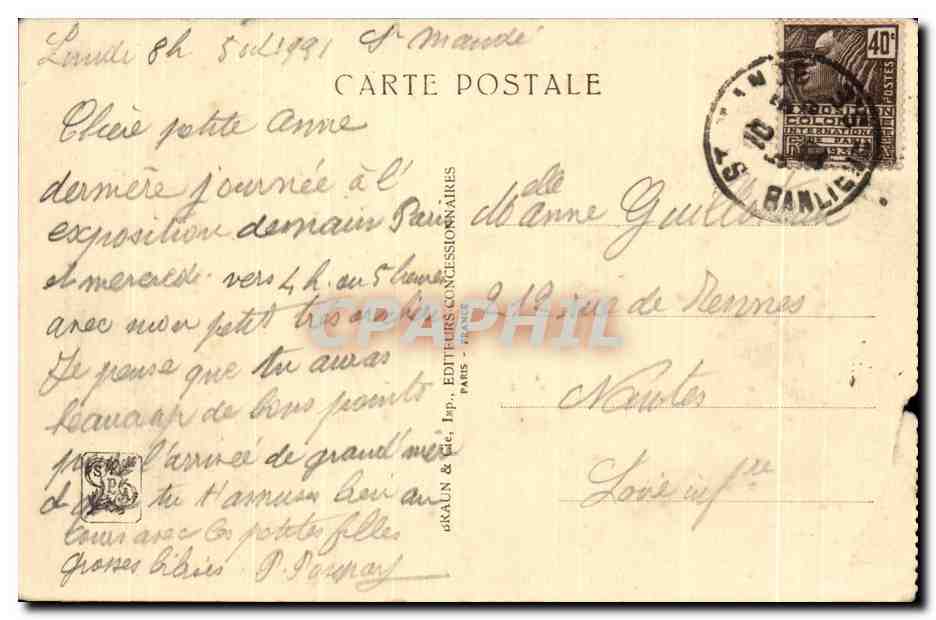 Lundi 8h 5 oct 1931 St Mandé
CARTE POSTALE
Chère petite Anne
dernière journée à l'
exposition demain Paris
et mercredi vers 4 h. ou 5 heures
avec mon petit très
Je pense que tu auras
beaucoup de bons points
l'arrivée de grand'mère
tu t'amuses bien au
cours avec les petites filles
Grosses bibises P.
SPA
BRAUN & Cie, Imp., EDITEURS-CONCESSIONNAIRES
PARIS - FRANCE
CPAPHIL
40c
POSTES
EXPOSITION
COLONIALE
INTERNATIONALE
PARIS 1931
ST MANDE
10
BANLIEUE
Melle Anne
212 rue de Rennes
Nantes
Loire infre